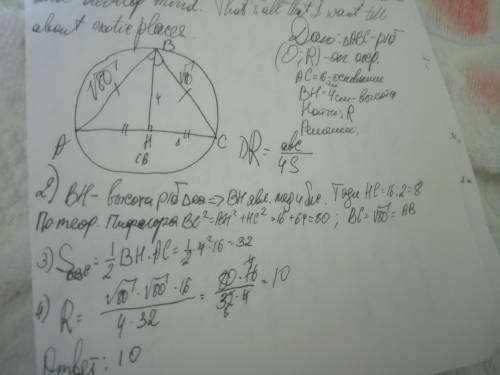 and develop mind. That's all that I want tell
about exotic places.
Дано: ΔABC - р/б
(O; R) - оп. окр.
AC = 16 - основание
BH = 4см - высота
Найти: R
Решение:
B
√80
√80
4
A
H
C
1) R = abc / 4S
2) BH - высота р/б => BH явл. мед и бис. Тогда HC = 16:2=8
По теор. Пифагора BC² = BH² + HC² = 16 + 64 = 80; BC = √80 = AB
3) S = 1/2 BH · AC = 1/2 4·16 = 32
4) R = √80 · √80 · 16 / 4 · 32 = 80 · 16 / 32 · 4 = 10
Ответ: 10